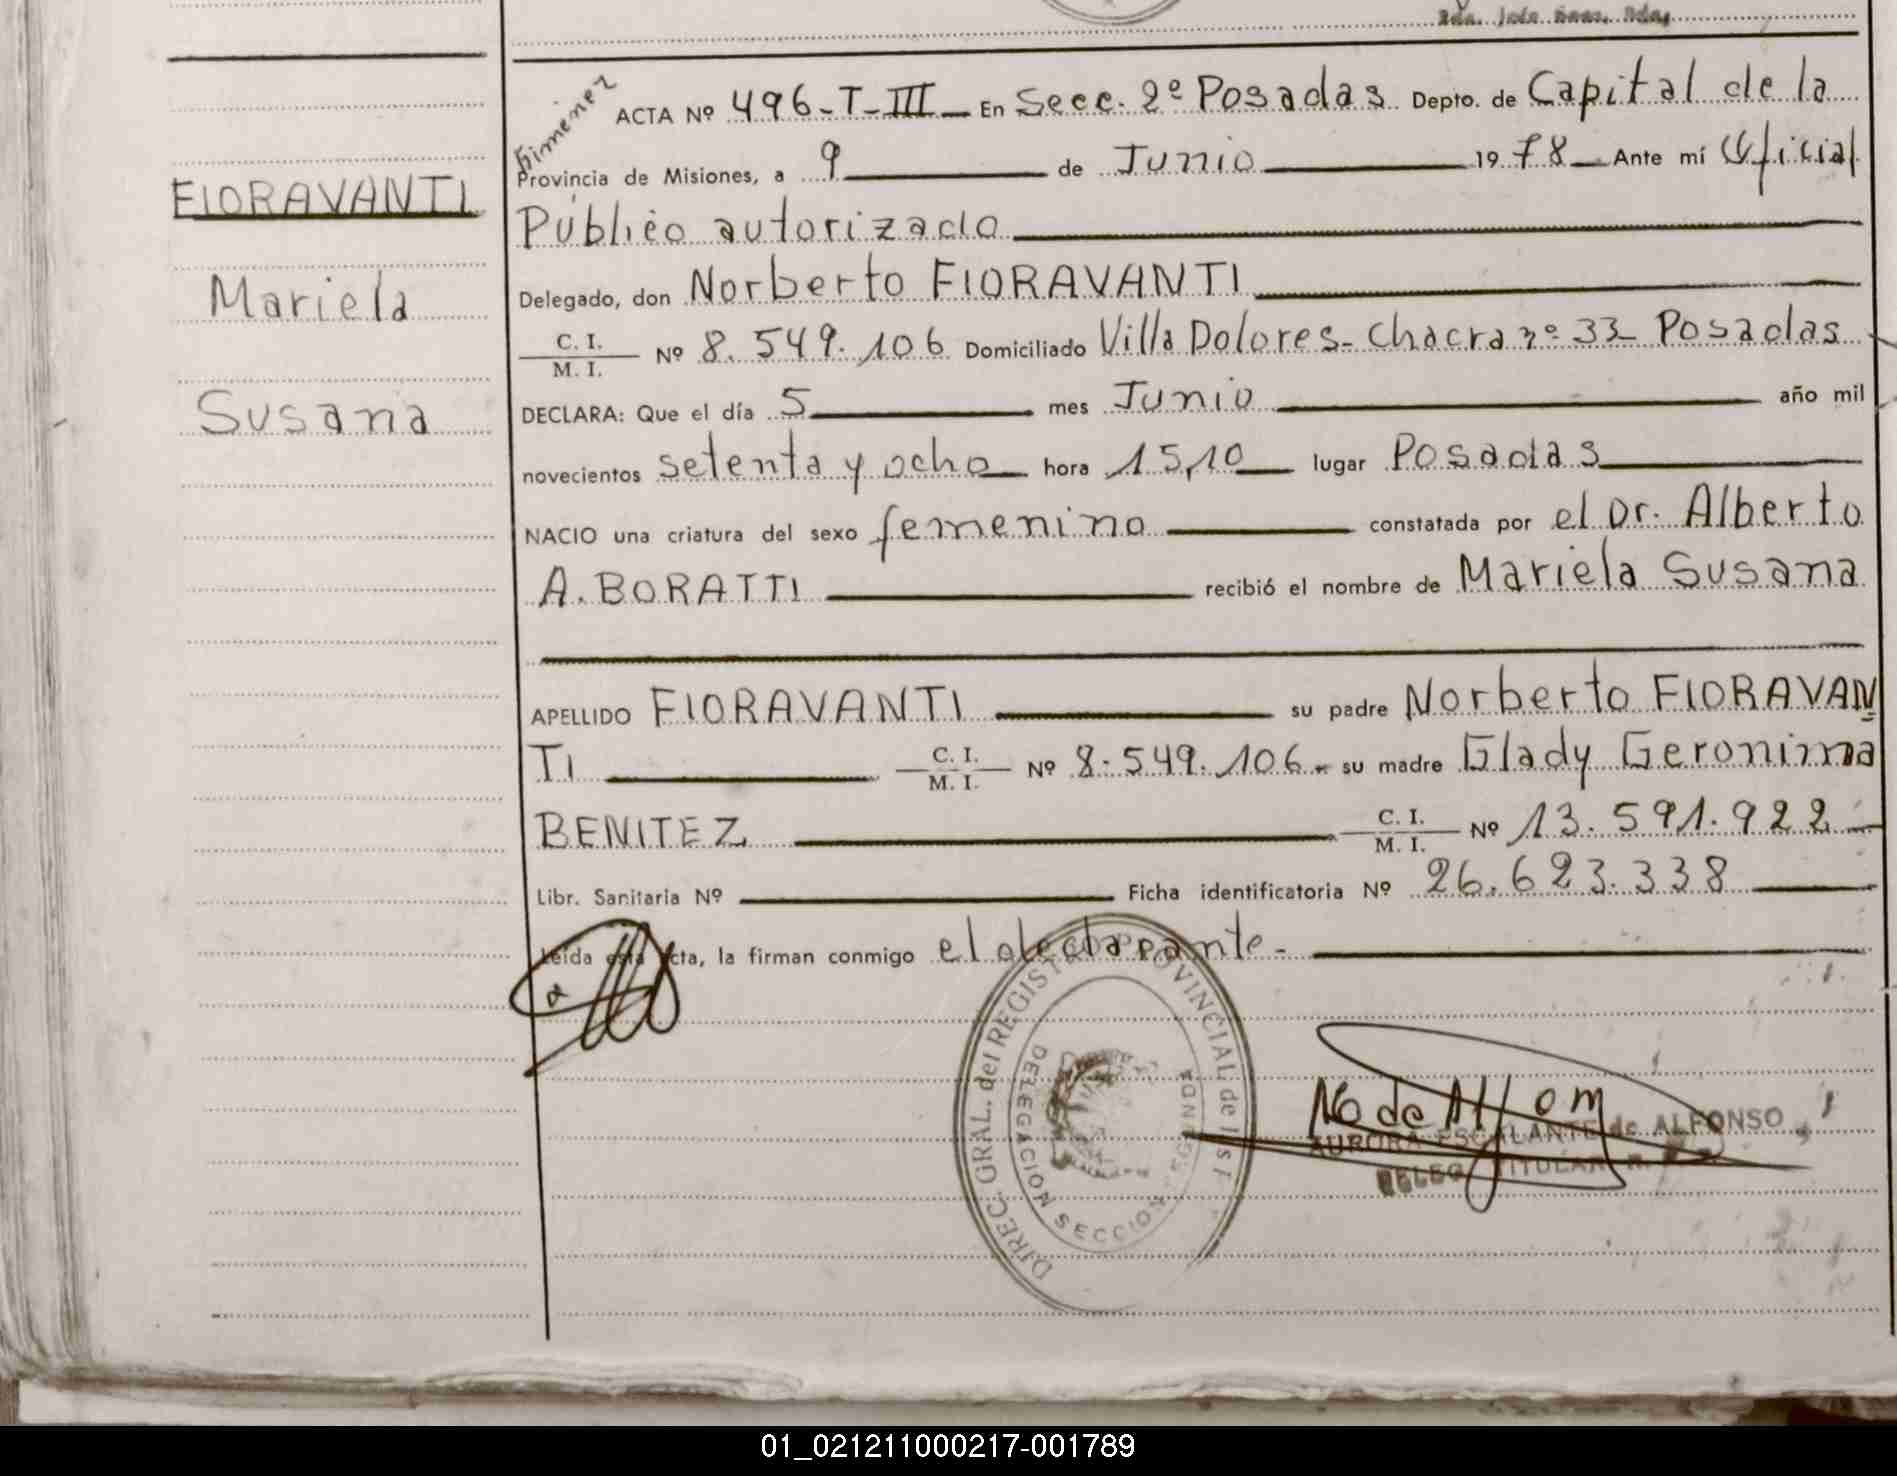 FIORAVANTI
Mariela
Susana
Gimenez
ACTA Nº 496-T-III En Secc. 2º Posadas Depto. de Capital de la
Provincia de Misiones, a 9 de Junio 1978 Ante mí Oficial
Público autorizado
Delegado, don Norberto FIORAVANTI
C. I.
M. I. Nº 8.549.106 Domiciliado Villa Dolores- Chacra nº 33- Posadas
DECLARA: Que el día 5 mes Junio año mil
novecientos setenta y ocho hora 15,10 lugar Posadas
NACIO una criatura del sexo femenino constatada por el Dr. Alberto
A. BORATTI recibió el nombre de Mariela Susana
APELLIDO FIORAVANTI su padre Norberto FIORAVAN
TI C. I. M. I. Nº 8.549.106- su madre Glady Geronima
BENITEZ C. I. M. I. Nº 13.591.922
Libr. Sanitaria Nº Ficha identificatoria Nº 26.623.338
Leída esta acta, la firman conmigo el declarante-
DIREC. GRAL. del REGISTRO PROVINCIAL de las P.
DELEGACION SECCION SEGUNDA
AURORA ESCALANTE de ALFONSO
DELEG. TITULAR
01_021211000217-001789